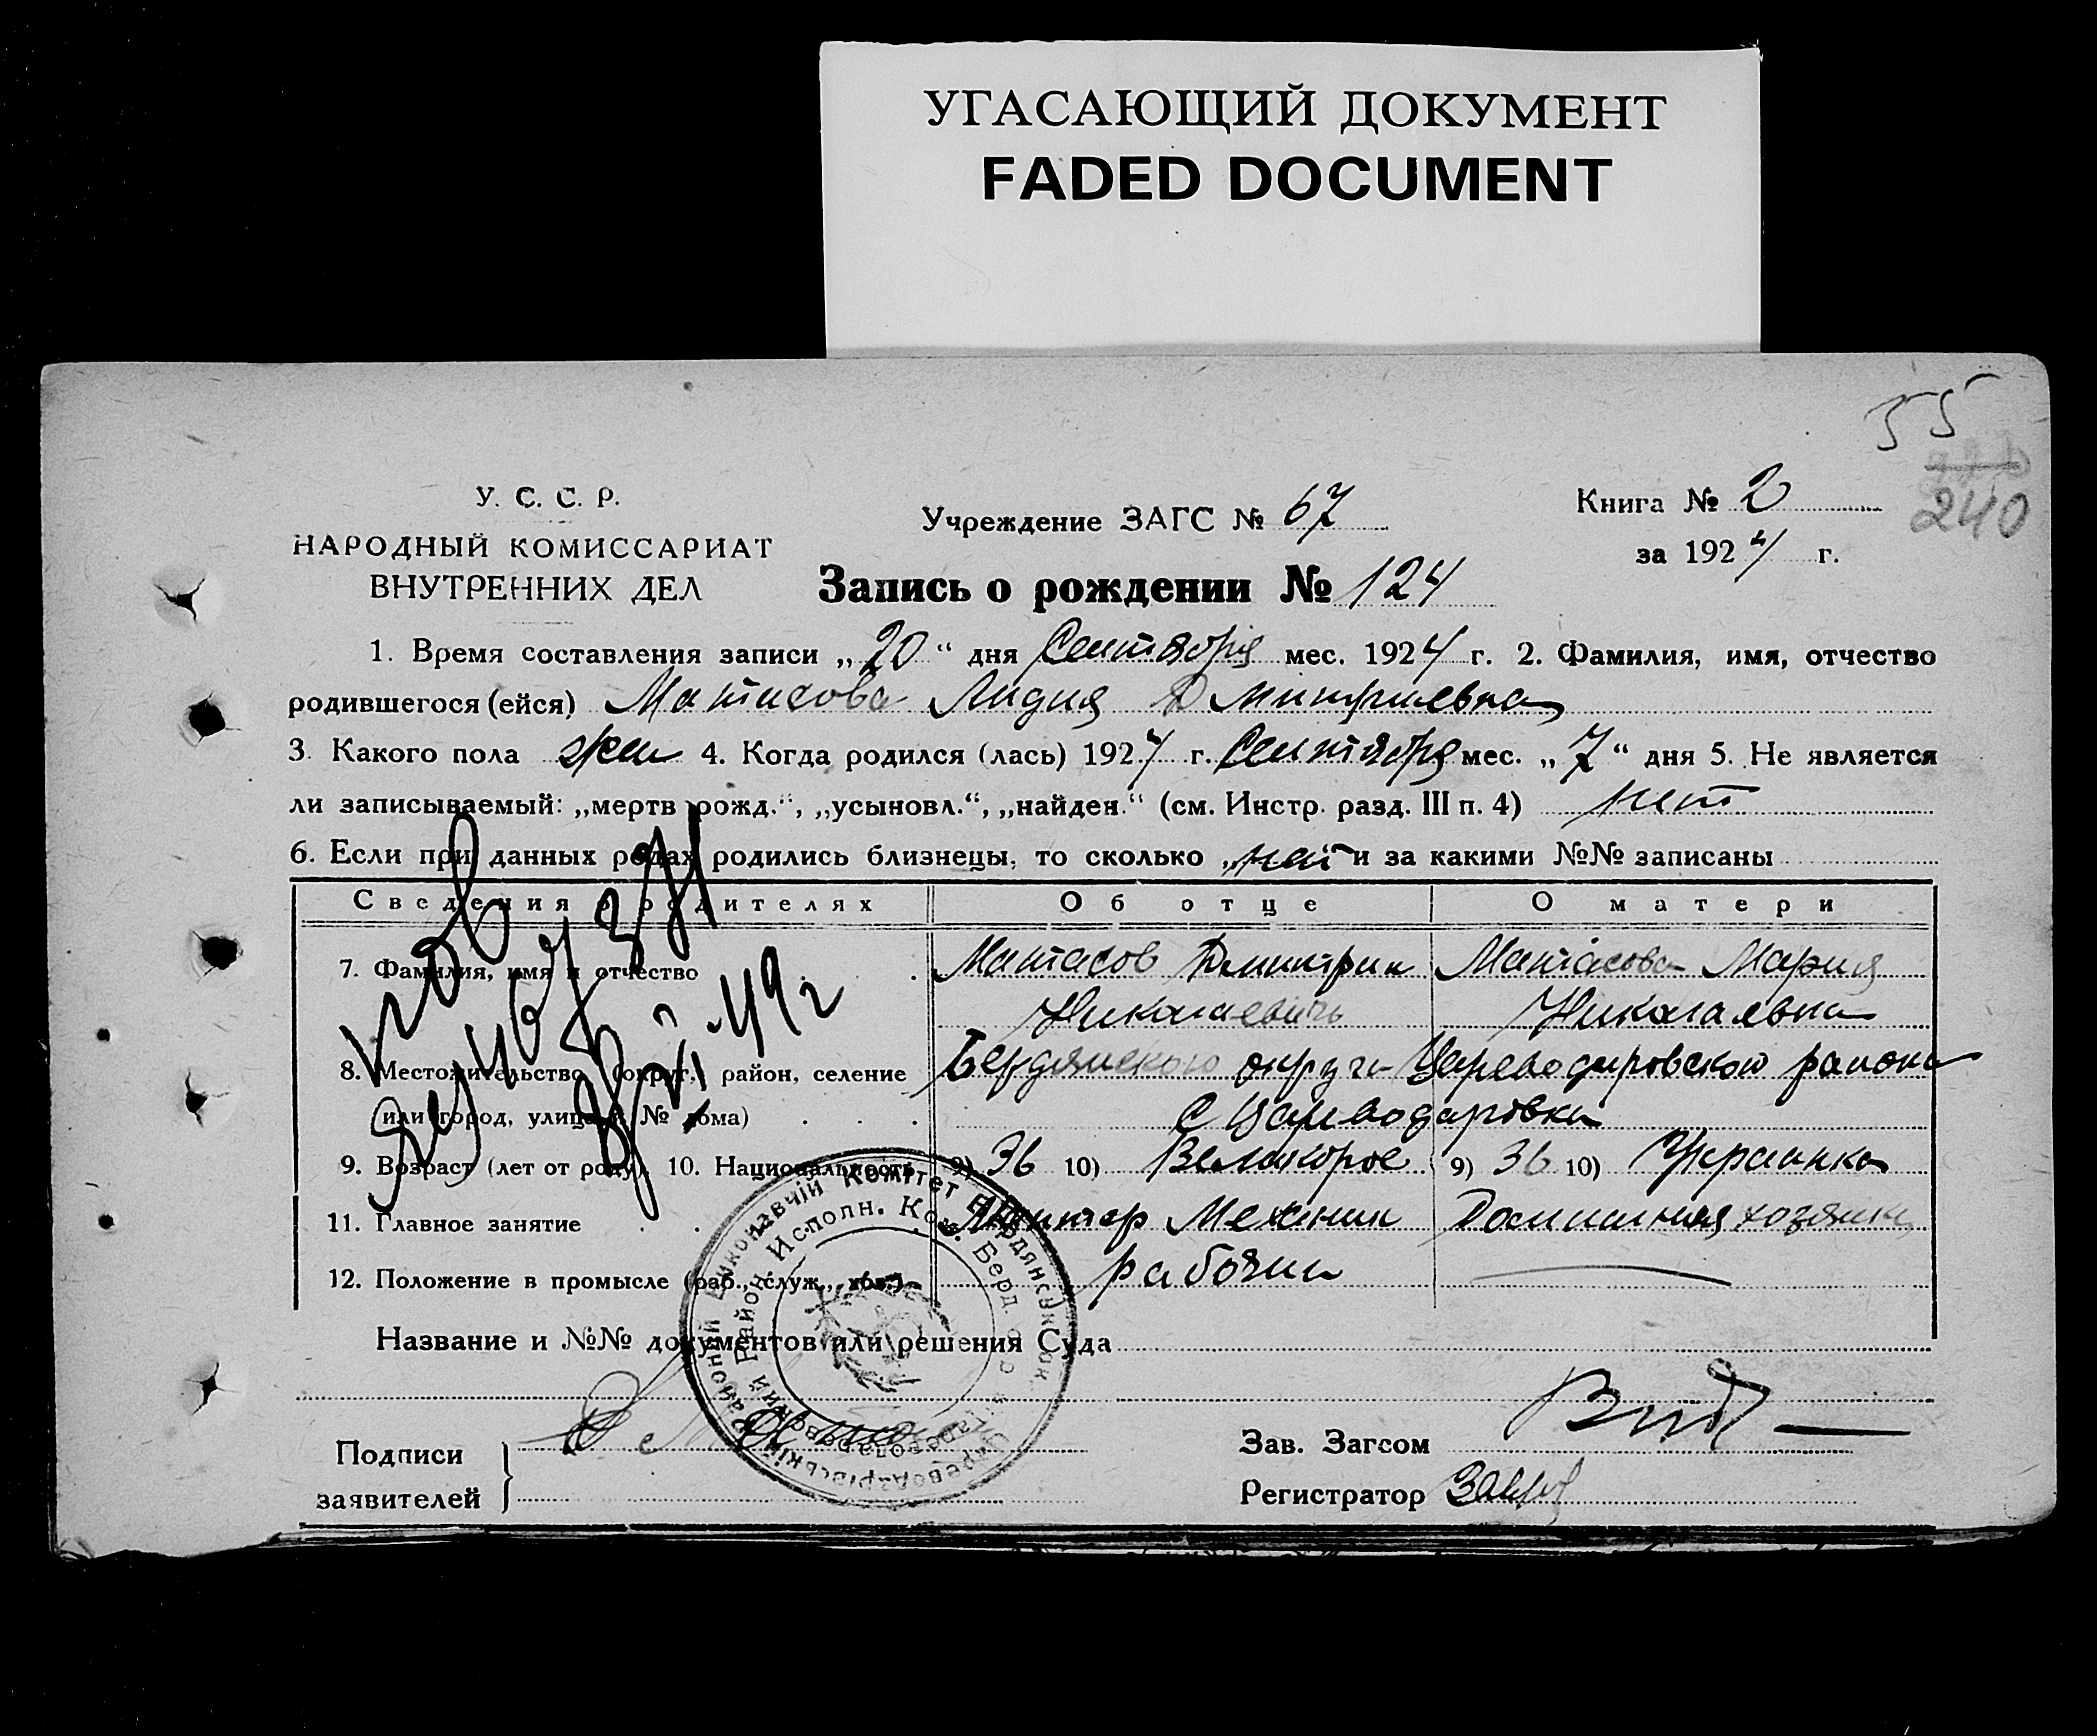 УГАСАЮЩИЙ ДОКУМЕНТ
FADED DOCUMENT
55
240
У. С. С. Р.
НАРОДНЫЙ КОМИССАРИАТ
ВНУТРЕННИХ ДЕЛ
Учреждение ЗАГС № 67
Книга № 2
за 1924 г.
Запись о рождении № 124
1. Время составления записи „20“ дня Сентября мес. 1924 г. 2. Фамилия, имя, отчество
родившегося (ейся) Матасова Лидия Дмитриевна
3. Какого пола жен 4. Когда родился (лась) 1924 г. Сентября мес. „7“ дня 5. Не является
ли записываемый: „мертв рожд.“, „усыновл.“, „найден.“ (см. Инстр. разд. III п. 4) нет
6. Если при данных родах родились близнецы, то сколько „нет“ и за какими №№ записаны
Сведения о родителях Об отце О матери
7. Фамилия, имя и отчество Матасов Дмитрий Матасова Мария
Николаевичь Николаевна
8. Местожительство (округ, район, селение Бердянского округа Цареводаровского района
или город, улица и № дома) с Цареводаровка
9. Возраст (лет от роду) 10. Национальность 9) 36 10) Великорос 9) 36 10) Украинка
11. Главное занятие Механик Домашняя хозяйка
12. Положение в промысле (раб., служ., хоз.) рабочий
Название и №№ документов или решения Суда
Подписи
заявителей
Зав. Загсом
Регистратор
49 г
Районний Виконавчій Комітет Бердянськ
Район. Исполн. Ком. Берд.